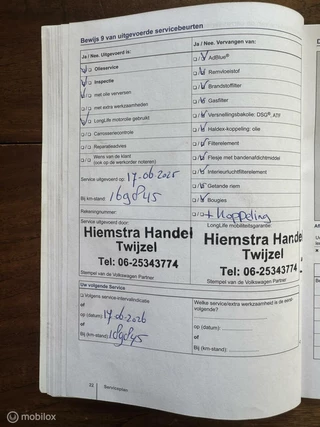 Bewijs 9 van uitgevoerde servicebeurten
Ja / Nee. Uitgevoerd is:
Olieservice
Inspectie
met olie verversen
met extra werkzaamheden
LongLife motorolie gebruikt
Carrosseriecontrole
Reparatieadvies
Wens van de klant
(ook op de werkorder noteren)
Service uitgevoerd op: 17-06-2025
Bij km-stand: 169845
Rekeningnummer:
Service uitgevoerd door:
Hiemstra Handel
Twijzel
Tel: 06-25343774
Stempel van de Volkswagen Partner
Ja / Nee. Vervangen van:
AdBlue®
Remvloeistof
Brandstoffilter
Gasfilter
Versnellingsbakolie: DSG®, ATF
Haldex-koppeling: olie
Filterelement
Flesje met bandenafdichtmiddel
Interieurluchtfilterelement
Getande riem
Bougies
+ Koppeling
LongLife mobiliteitsgarantie:
Hiemstra Handel
Twijzel
Tel: 06-25343774
Stempel van de Volkswagen Partner
Uw volgende Service
Volgens service-intervalindicatie
of
op (datum): 17-06-2026
of
Bij (km-stand): 189845
Welke service/extra werkzaamheid is de eerst-
volgende?
op (datum):
of
Bij (km-stand):
32
Serviceplan
mobilox